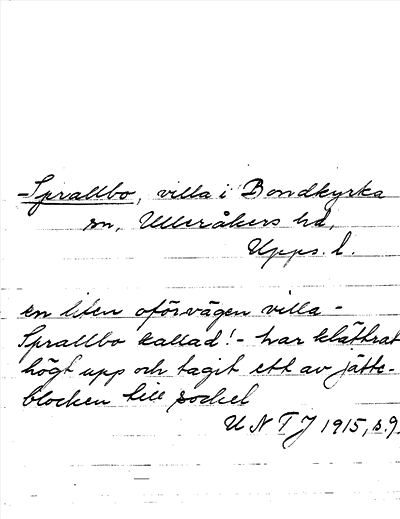 -Sprallbo, villa i Bondkyrka
sn, Ulleråkers hd,
Upps. l.
en liten oförvägen villa -
Sprallbo kallad! - har klättrat
högt upp och tagit ett av jätte-
blocken till sockel
UNTJ 1915, s.9.